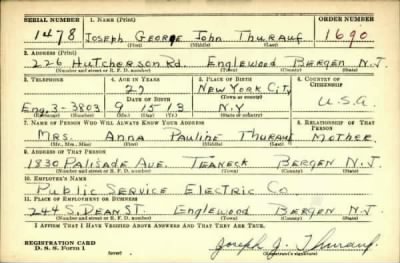 SERIAL NUMBER 1. NAME (Print) ORDER NUMBER
1478 Joseph George John Thurauf 1690
(First) (Middle) (Last)
2. ADDRESS (Print)
226 Hutcherson Rd. Englewood Bergen N.J.
(Number and street or R. F. D. number) (Town) (County) (State)
3. TELEPHONE 4. AGE IN YEARS 5. PLACE OF BIRTH 6. COUNTRY OF CITIZENSHIP
27 New York City
DATE OF BIRTH (Town or county) U.S.A.
Eng. 3-3803 9 15 13 N.Y
(Exchange) (Number) (Mo.) (Day) (Yr.) (State or country)
7. NAME OF PERSON WHO WILL ALWAYS KNOW YOUR ADDRESS 8. RELATIONSHIP OF THAT PERSON
Mrs. Anna Pauline Thurauf Mother
(Mr., Mrs., Miss) (First) (Middle) (Last)
9. ADDRESS OF THAT PERSON
1830 Palisade Ave. Teaneck Bergen N.J
(Number and street or R. F. D. number) (Town) (County) (State)
10. EMPLOYER'S NAME
Public Service Electric Co.
11. PLACE OF EMPLOYMENT OR BUSINESS
244 S. Dean St. Englewood Bergen N.J.
(Number and street or R. F. D. number) (Town) (County) (State)
I AFFIRM THAT I HAVE VERIFIED ABOVE ANSWERS AND THAT THEY ARE TRUE.
REGISTRATION CARD
D. S. S. Form 1 Joseph J. Thurauf
(over) (Registrant's signature)